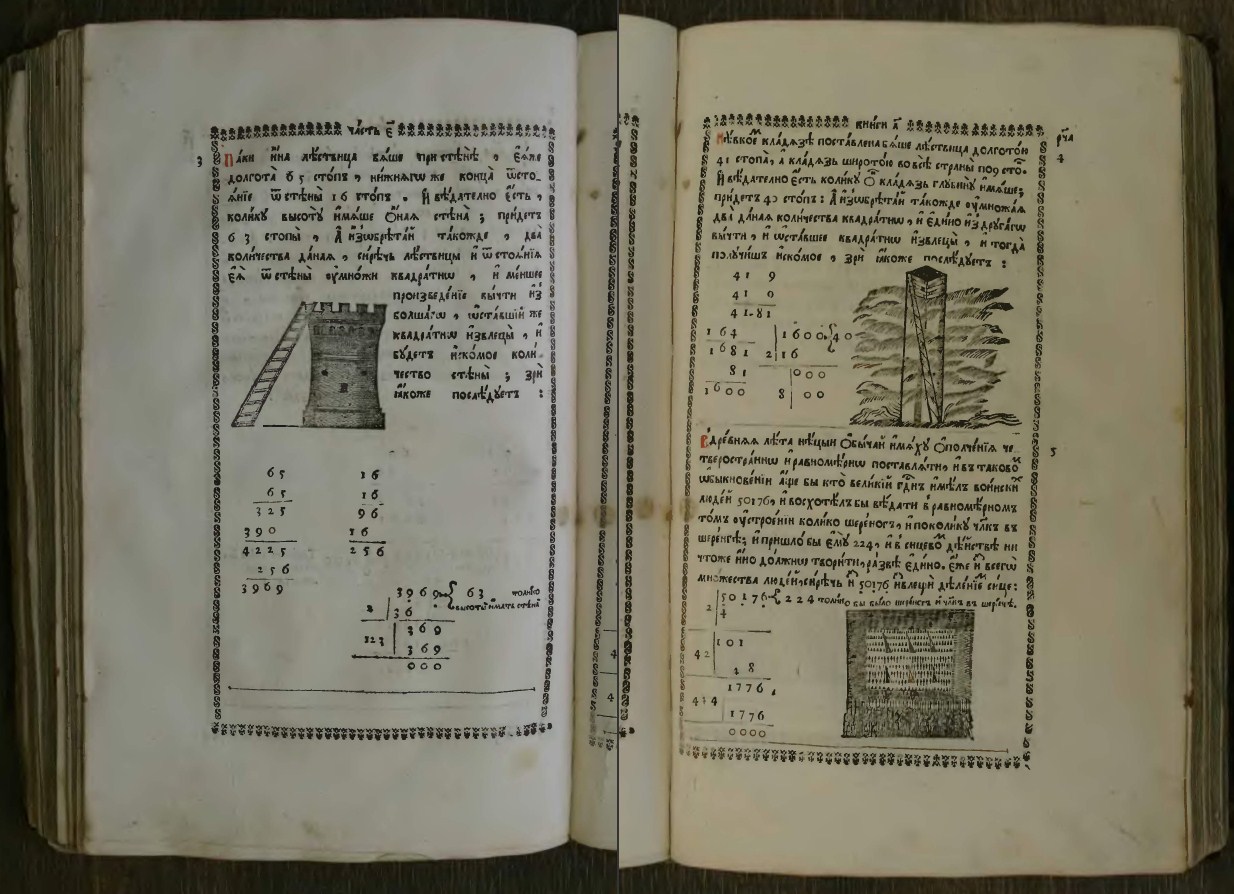 ча́сть є҃
з
Па́ки и҆́на лѣ́ствица бѧ́ше при стѣнѣ̀ , є҆ѧ́же
долгота̀ 65 сто́пъ , ни́жнѧгѡ же конца̀ ѿсто-
ѧ́нїе ѿ стѣны̀ 16 сто́пъ . И҆ вѣ́дателно є҆́сть ,
коли́кꙋ высотꙋ̀ и҆мѧ́ше ѻ҆́наѧ стѣна̀ ; прї́детъ
63 стопы̀ , А҆ и҆з̾ѡбрѣта́й та́кожде , два̀
коли́чества да̑наѧ , си́рѣчь лѣ́ствицы и҆ ѿстоѧ́нїѧ
є҆ѧ̀ ѿ стѣны̀ ᲂу҆мно́жи квадра́тнѡ , и҆ ме́ншее
произведе́нїе вы́чти и҆з̾
бо́лшагѡ , ѡ҆ста́вшїй же
квадра́тнѡ и҆звлецы̀ , и҆
бꙋ́детъ и҆ско́мое коли́-
чество стѣны̀ ; зрѝ
ꙗ҆́коже послѣ́дꙋетъ :
65 16
65 16
325 96
390 16
4225 256
256
3969
3969 63 толи́кꙋ
высотꙋ̀ и҆́мать стѣна̀
2 36
369
123 369
000
кни́ги а҃
рч҃а
Нѣ́вкоем кла́дѧзѣ поста́влена бѧ́ше лѣ́ствица долгото́ю
41 стопа̀ , а кла́дѧзь широто́ю во всѣ̀ страны̀ по 9 сто́п.
И҆ вѣ́дателно є҆́сть коли́кꙋ ѻ҆́н кла́дѧзь глꙋбинꙋ̀ и҆мѧ́ше ;
прї́детъ 40 сто́пъ : А҆ и҆з̾ѡбрѣта́й та́кожде ᲂу҆множа́ѧ
два̀ да̑наѧ коли́чества квадра́тнѡ , и҆ є҆ди́но и҆з̾ дрꙋга́гѡ
вы́чти , и҆ ѡ҆ста́вшее квадра́тнѡ и҆звлецы̀ , и҆ тогда̀
полꙋчи́шъ и҆ско́мое , зрѝ ꙗ҆́коже послѣ́дꙋетъ :
41 9
41 9
41 81
164 1600 40
1681 2 16
81 000
1600 8 00
Въ дре́внѧѧ лѣ̑та нѣ́цыи ѻ҆бы́чай и҆мѧ́хꙋ ѻ҆полче́нїѧ че-
тверостра́ннѡ и҆ равномѣ́рнѡ поставлѧ́ти , и҆ въ таково́м
ѡ҆быкнове́нїи а҆́ще бы кто̀ вели́кїй гдⷭ҇нъ и҆мѣ́лъ во́инских
люде́й 50176 , и҆ восхотѣ́лъ бы вѣ́дати в равномѣ́рном
то́мъ ᲂу҆строе́нїи коли́ко шере́ногъ , и҆ по коли́кꙋ чл҃къ въ
шере́нгѣ ; и҆ пришло̀ бы є҆мꙋ̀ 224 , и҆ в си́цевом дѣ́йствѣ ни
что́же и҆́но до́лжни твори́ти , ра́звѣ є҆ди́но . є҆́же и҆з̾ всегѡ̀
мно́жества люде́й , си́рѣчь и҆з̾ 50176 и҆звлещѝ дѣле́нїе си́це :
50176 224 толи́кꙋ бы бы́ло шере́ногъ и҆ чл҃къ въ шере́нгѣ .
2 4
101
42 8
1776
1776
0000